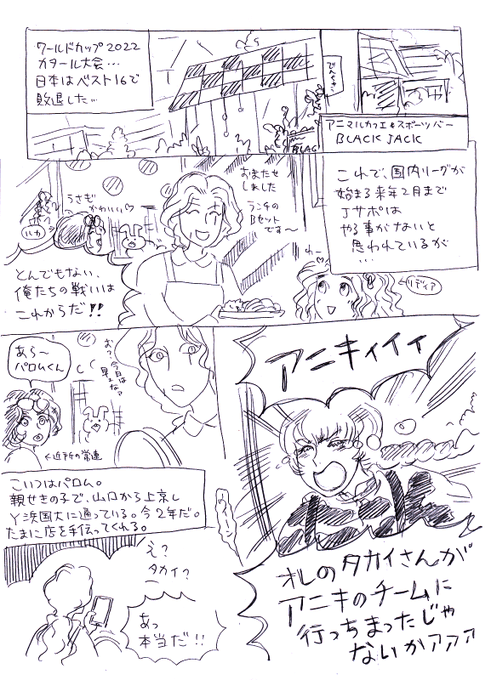 ワールドカップ2022
カタール大会…
日本はベスト16で
敗退した…
アニマルカフェ&スポーツバー
BLACK JACK
BLAC
これで、国内リーグが
始まる来年2月まで
Jサポは
やる事がないと
思われているが
…
おまたせ
しました
ランチの
Bセット
です〜
うさぎ
かわいい♡
ルカ
わ〜
リディア
とんでもない、
俺たちの戦いは
これからだ!!
アニキィイィ
お?今日は
早えなァ
あら〜
パロムくん
近所の常連
こいつはパロム。
親せきの子で、山口から上京し
Y浜国大に通っている。今2年だ。
たまに店を手伝ってくれる。
オレのタカイさんが
アニキのチームに
行っちまったじゃ
ないかァァァ
え?
タカイ?
あっ
本当だ!!